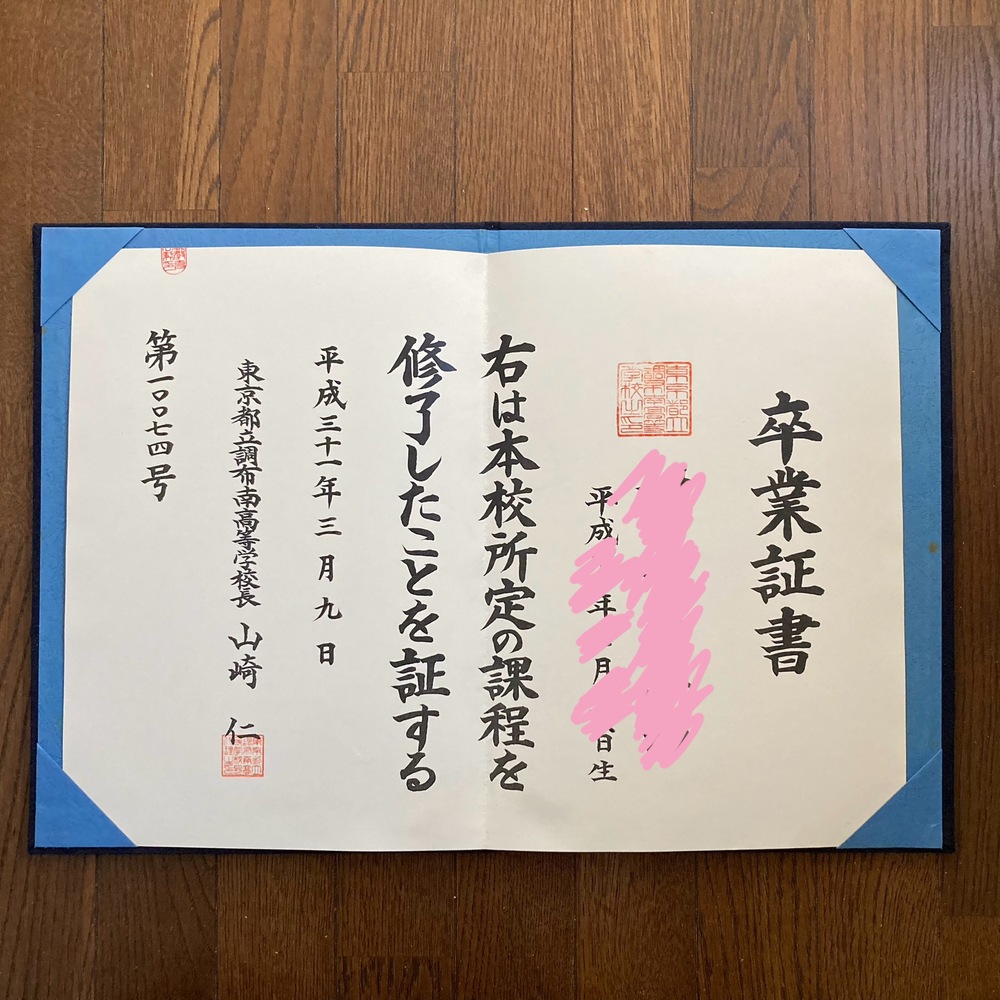 卒業証書
平成 年 月 日生
右は本校所定の課程を
修了したことを証する
平成三十一年三月九日
東京都立調布南高等学校長 山崎 仁
第一〇〇七四号